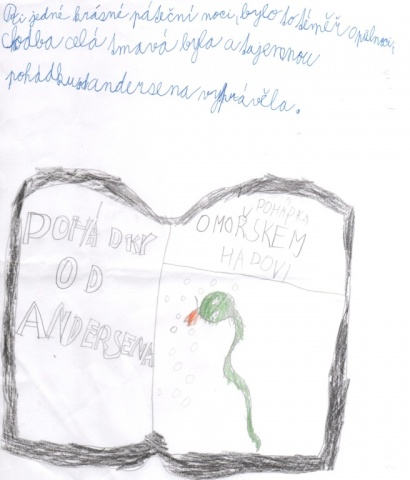 Při jedné krásné páteční noci, bylo to téměř o pulnoci,
chodba celá tmavá byla a tajemnou
pohádku od andersena vyprávěla.
POHÁDKY
OD
ANDERSENA
POHÁDKA
O MOŘSKÉM
HADOVI